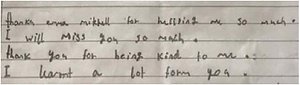 thanks anna mitchell for helping me so much.
I will miss you so much.
thank you for being kind to me.
I learnt a lot form you.